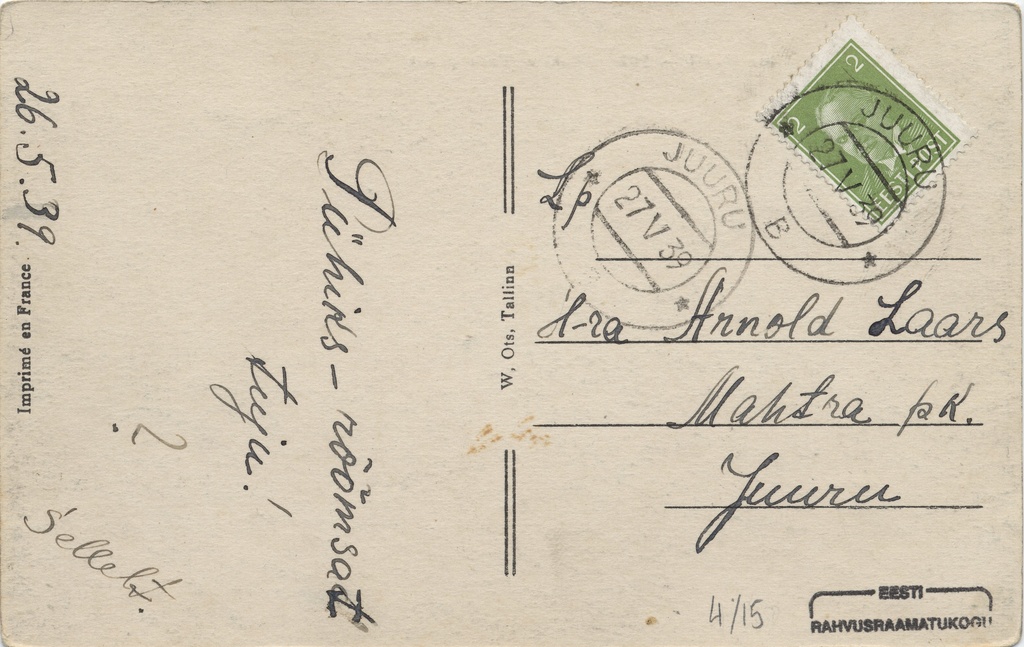 26.5.39.
Pühiks-rõõmsat
tuju!
?
Sellelt.
Imprimé en France
W. Ots, Tallinn
2
2
EESTI POST
JUURU
27 V 39
B
JUURU
27 V 39
Lp
H-ra Arnold Laars
Mahtra pk.
Juuru
4/15
EESTI
RAHVUSRAAMATUKOGU